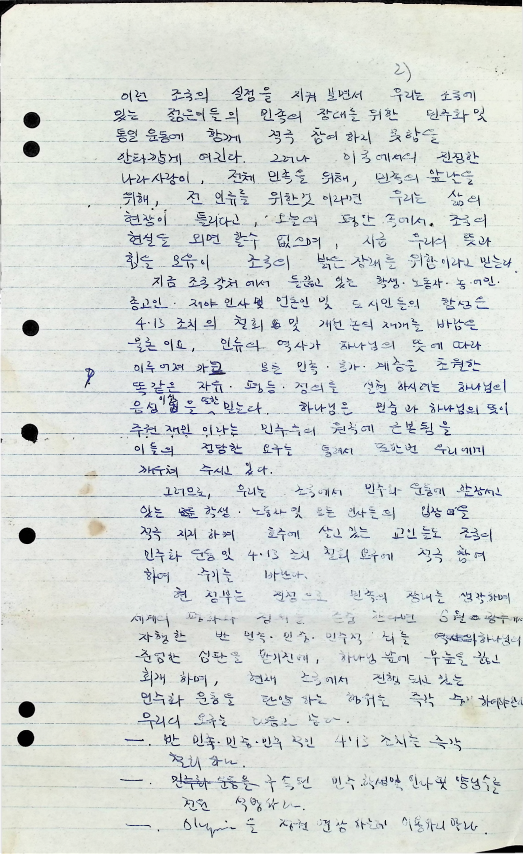 2)
이런 조국의 실정을 지켜 보면서 우리는 조국에
있는 젊은이들의 민족의 장래를 위한 민주화 및
통일 운동에 함께 적극 참여하지 못함을
안타깝게 여긴다. 그러나 이국에서의 진정한
나라사랑이, 전체 민족을 위해, 민족의 앞날을
위해, 전 인류를 위한것 이라면 우리는 삶의
현장이 틀리다고, 오늘의 속에서. 조국의
현실을 외면 할수 없으며, 지금 우리의 뜻과
힘을 모음이 조국의 밝은 장래를 위함이라고 믿는다.
지금 조국 각처에서 들끓고 있는 학생·노동자·농·어민·
종교인·재야 인사 및 언론인 및 도시민들의 함성은
4·13 조치의 철회 및 개헌 논의 재개를 바람은
물론이요, 인류의 역사가 하나님의 뜻에 따라
이루어져 모든 민족·국가·계층을 초월한
똑같은 자유·평등·정의를 실현 하시려는 하나님의
음성 을 또한 믿는다. 하나님은 민중과 하나님의 뜻이
주권 재민 이라는 민주주의 원칙에 근본됨을
이들의 정당한 요구를 통해서 또한번 우리에게
깨우쳐 주시고 있다.
그러므로, 우리는 조국에서 민주화 운동에 앞장서고
있는 학생·노동자 및 모든 인사들의 입장을
적극 지지 하며 호주에 살고 있는 교민들도 조국의
민주화 운동 및 4·13 조치 철회 요구에 적극 참여
하여 주기를 바란다.
현 정부는 진정으로 민족의 장래를 생각하며
세계의 평화와 한다면 5월
자행한 반 민족·민중·민주적 하나님의
준엄한 심판을 받기전에, 하나님 앞에 무릎을 꿇고
회개 하며, 현재 조국에서 진행 되고 있는
민주화 운동을 탄압 하는 행위는 즉각
우리의 요구는 다음과 같다.
一. 반 민족·민중·민주 적인 4·13 조치는 즉각
철회 하라.
一. 민주화 운동을 구속된 민주 학생 및 인사 및 양심수를
전원 석방하라.
一. Olympic을 정권 연장 하는데 이용하지 말라.